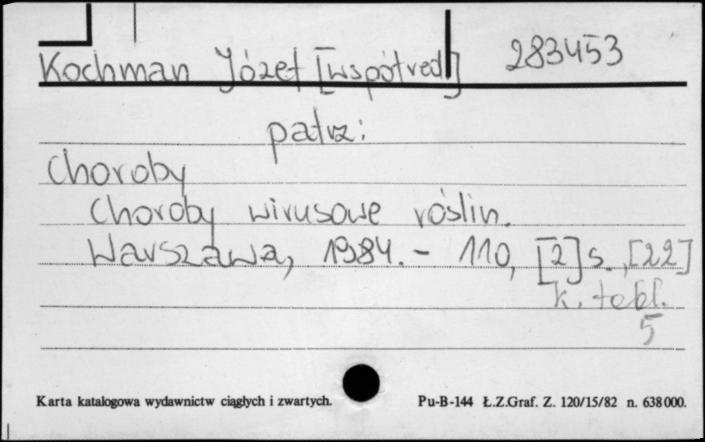 Kochman Józef [współred] 283453
patrz:
Choroby
Choroby wirusowe roślin.
Warszawa, 1984. - 110, [2] s., [22]
k. tabl.
5
Karta katalogowa wydawnictw ciągłych i zwartych. Pu-B-144 Ł.Z.Graf. Z. 120/15/82 n. 638 000.